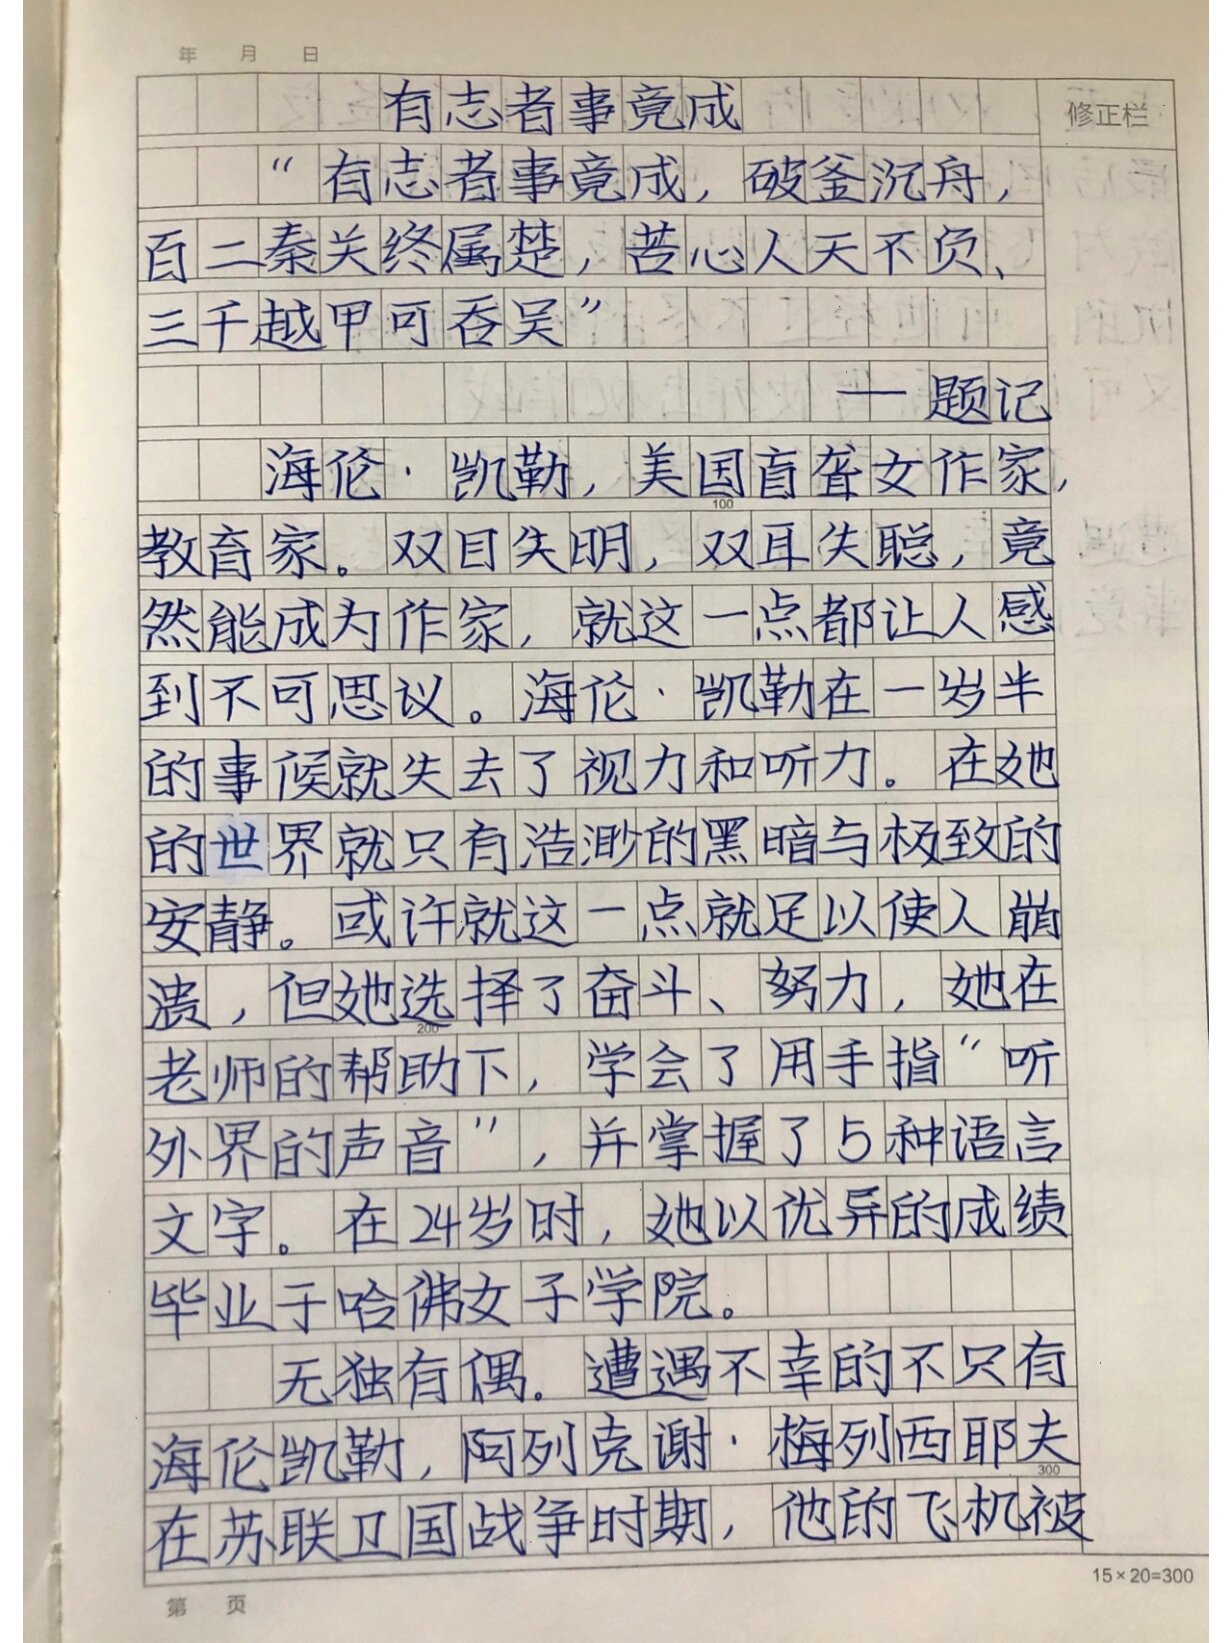 年 月 日
有志者事竟成
修正栏
“有志者事竟成，破釜沉舟，
百二秦关终属楚，苦心人天不负、
三千越甲可吞吴”
——题记
海伦·凯勒，美国盲聋女作家，
100
教育家。双目失明，双耳失聪，竟
然能成为作家，就这一点都让人感
到不可思议。海伦·凯勒在一岁半
的事候就失去了视力和听力。在她
的世界就只有浩渺的黑暗与极致的
安静。或许就这一点就足以使人崩
溃，但她选择了奋斗、努力，她在
200
老师的帮助下，学会了用手指“听
外界的声音”，并掌握了5种语言
文字。在24岁时，她以优异的成绩
毕业于哈佛女子学院。
无独有偶。遭遇不幸的不只有
海伦凯勒，阿列克谢·梅列西耶夫
300
在苏联卫国战争时期，他的飞机被
15×20=300
第 页